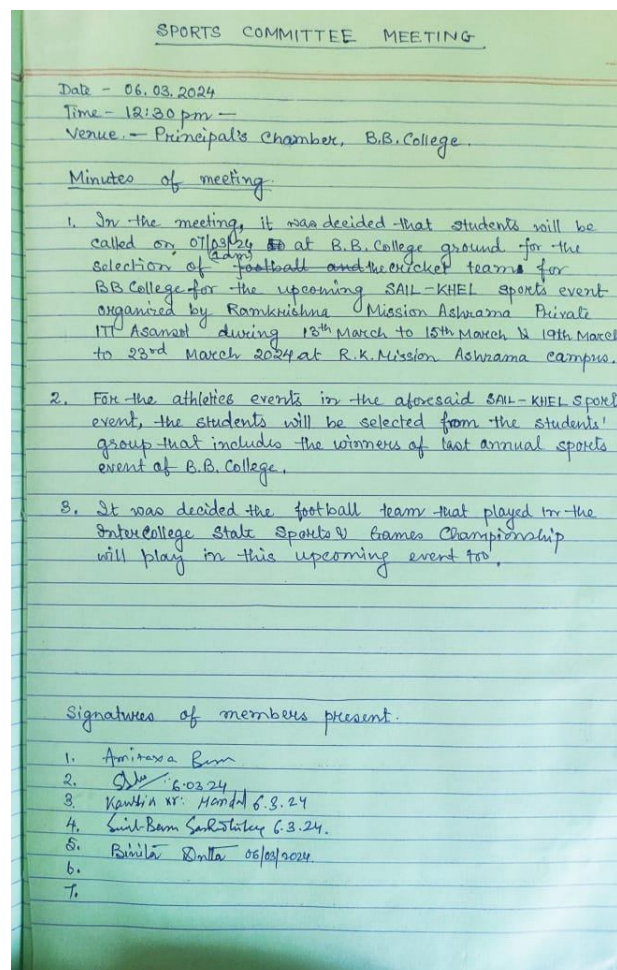 SPORTS COMMITTEE MEETING
Date - 06.03.2024
Time - 12:30 pm -
Venue. - Principal's Chamber, B.B. College.
Minutes of meeting.
1. In the meeting, it was decided that students will be
called on 07/03/24 at B.B. College ground for the
selection of football and the cricket team for
BB College for the upcoming SAIL-KHEL sports event
organized by Ramkrishna Mission Ashrama Private
ITI Asansol during 13th March to 15th March & 19th March
to 23rd March 2024 at R.K. Mission Ashrama campus.
2. For the athletics events in the aforesaid SAIL-KHEL Sport
event, the students will be selected from the students'
group that includes the winners of last annual sports
event of B.B. College.
3. It was decided the football team that played in the
Intercollege State Sports & Games Championship
will play in this upcoming event too.
Signatures of members present.
1. Amitava
2. 6.03.24
3. Mandal 6.3.24
4. 6.3.24.
5. Dutta 06/03/2024
6.
7.